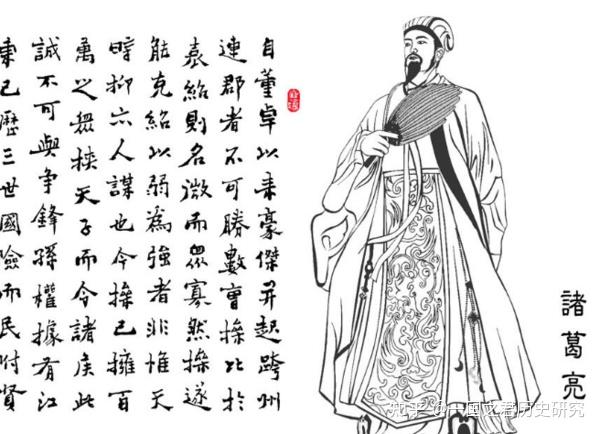 自董卓以来豪傑并起跨州
連郡者不可勝數曹操比於
袁紹則名微而眾寡然操遂
能克紹以弱為強者非惟天
時抑亦人謀也今操已擁百
萬之眾挾天子而令諸侯此
誠不可與爭鋒孫權據有江
東已歷三世國險而民附賢
諸葛亮
知乎 @一国之君历史研究